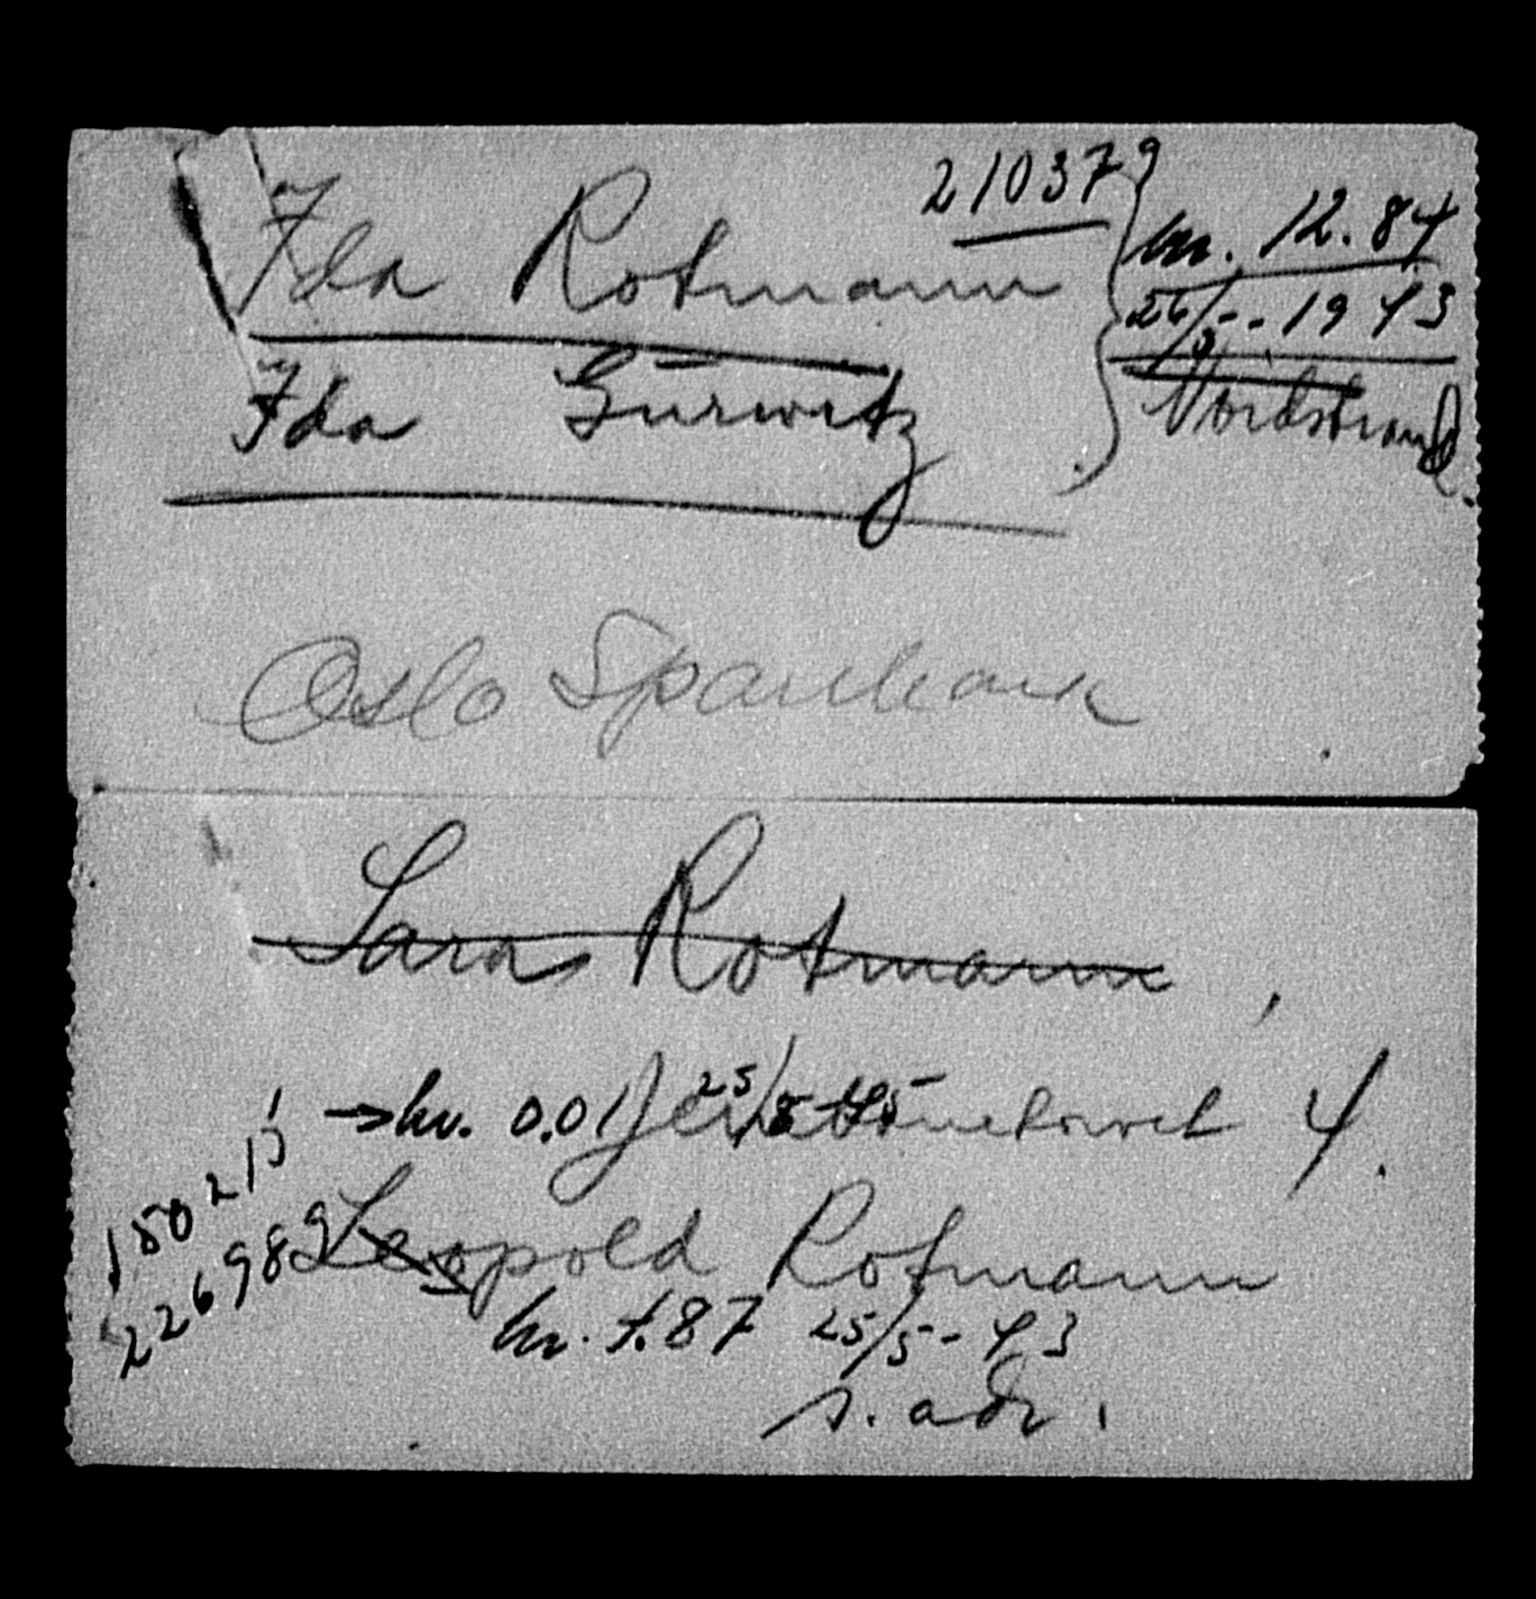 210379
Ida Rotmann
kr. 12.84
26/5-1943
Ida Gurwitz
Nordstrand.
Oslo Sparebank
Sara Rotmann
→ kr. 0.01 25/5 4.
150215
226989 Leopold Rotmann
kr. 7.87 25/5-43
s. adr.